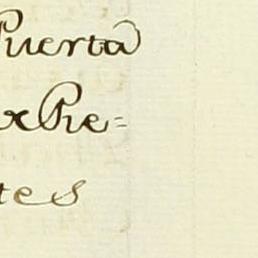 Puerta
xPre=
tes